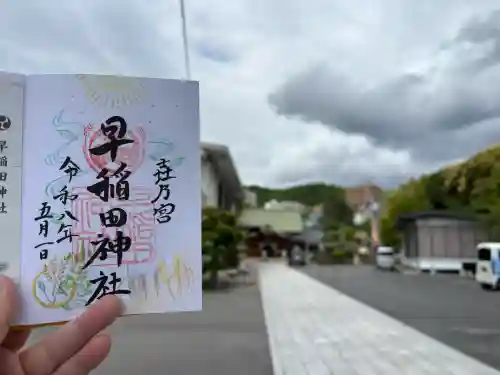 壱乃宮
早稲田神社
令和八年
五月一日
早稲田神社